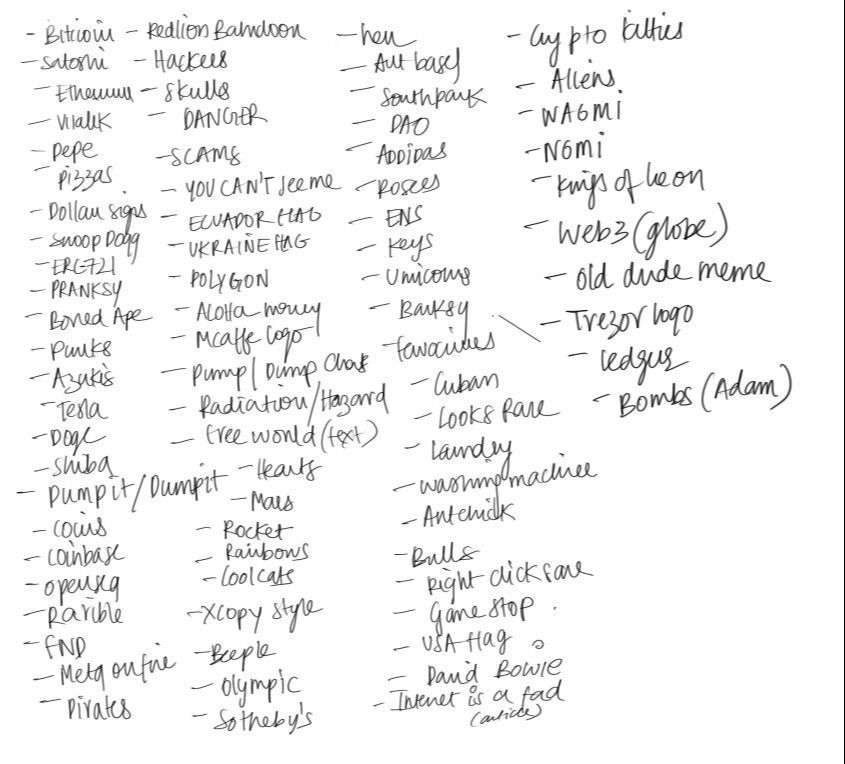 - Bitcoin
- Satoshi
- Ethereum
- Vitalik
- Pepe
- Pizzas
- Dollar signs
- Snoop Dogg
- ERC721
- PRANKSY
- Bored Ape
- Punks
- Azukis
- Tesla
- DOGE
- Shiba
- Pump it/Dump it
- Coins
- Coinbase
- Opensea
- Rarible
- FND
- Meta on fire
- Pirates
- Redlion
- Hackers
- Skulls
- DANGER
- SCAMS
- YOU CAN'T see me
- ECUADOR FLAG
- UKRAINE FLAG
- POLYGON
- Aloha money
- Mcaffe logo
- Pump/Dump Chart
- Radiation/Hazard
- free world (text)
- Hearts
- Mars
- Rocket
- Rainbows
- Cool cats
- Xcopy style
- Beeple
- Olympic
- Sotheby's
- hen
- Southpark
- DAO
- ADDIDAS
- ENS
- Keys
- Unicorns
- Banksy
- Cuban
- Looks Rare
- Laundry
- washing machine
- Bulls
- Right click save
- Game Stop
- USA flag
- David Bowie
- Internet is a fad
(article)
- Crypto kitties
- Aliens
- WAGMI
- NGMI
- Kings of Leon
- Web3 (globe)
- Old dude meme
- Trezor logo
- Ledger
- Bombs (Adam)